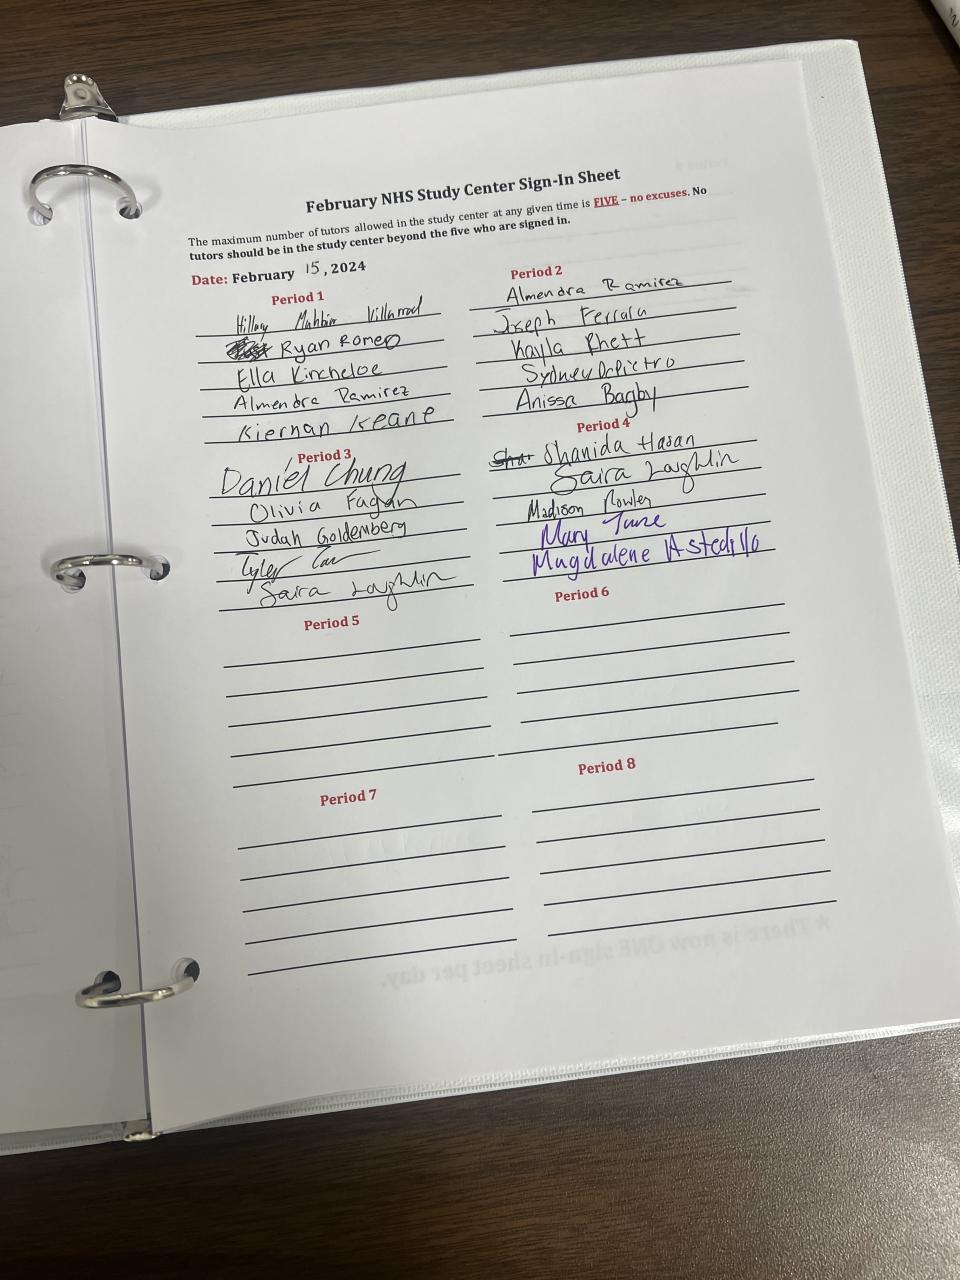 February NHS Study Center Sign-In Sheet
The maximum number of tutors allowed in the study center at any given time is FIVE – no excuses. No
tutors should be in the study center beyond the five who are signed in.
Date: February 15, 2024
Period 1
Hillary Mahbin Villarreal
Ryan Romeo
Ella Kincheloe
Almendra Ramirez
Kiernan Keane
Period 2
Almendra Ramirez
Joseph Ferrara
Kayla Rhett
Sydney DiPietro
Anissa Bagby
Period 3
Daniel Chung
Olivia Fagan
Judah Goldemberg
Tyler
Saira Laughlin
Period 4
Shanida Hasan
Saira Laughlin
Madison Rowley
Mary June
Magdalene Astedillo
Period 5
Period 6
Period 7
Period 8
★There is now ONE sign-in sheet per day.